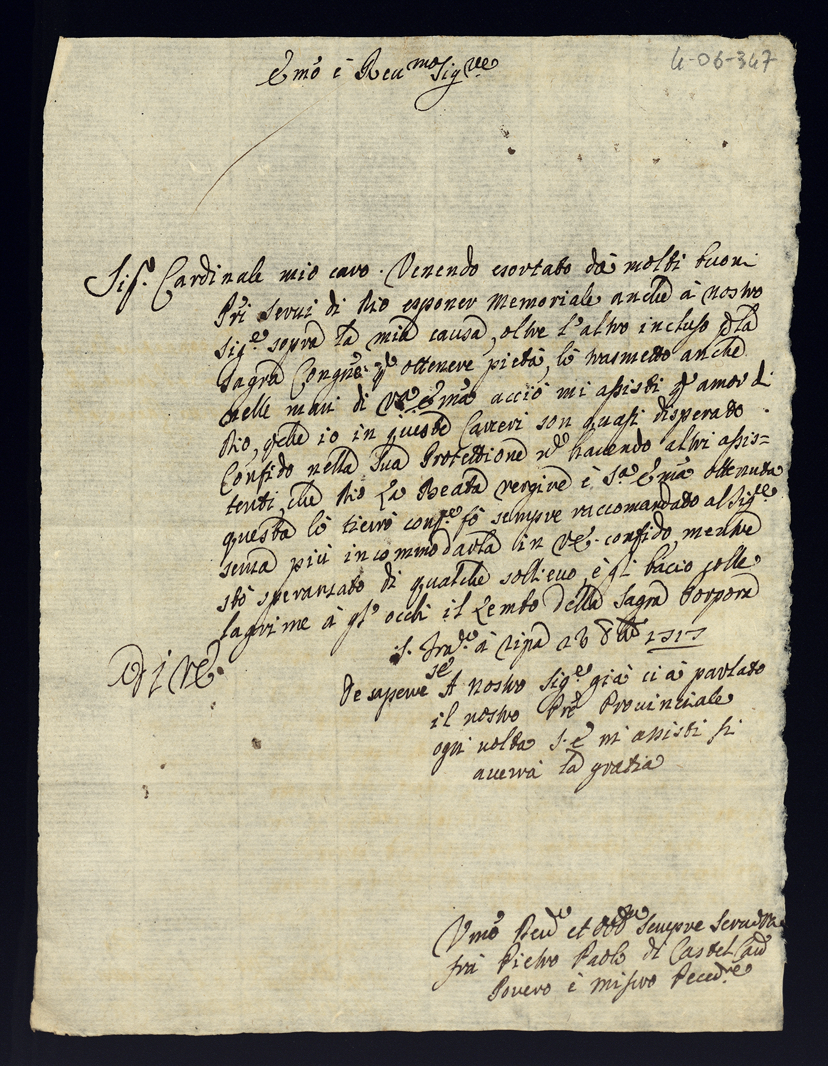 4-06-347
Emo è Reumo Sigre
Sigr. Cardinale mio caro. Venendo esortato dà molti buoni
Pri Serui di Dio esponer memoriale anche à nostro
Sige sopra la mia causa, oltre l'altro incluso p la
Sagra Congne. p ottenere pietà, lò trasmetto anche
nelle mani di Va Ema acciò mi assisti p amor di
Dio, pche io in queste Carceri son quasi disperato
Confido nella Sua Protettione nō hauendo altri assis=
tenti, che Dio La Beata vergine è Sa Ema ottenuta
questa lò tierrò come fò sempre raccomandato al Sige
senza più incommodarla in VE. confido, mentre
stò speranzato di qualche sollieuo, è gli bacio colle
lagrime à gl'occhi il Lembo della Sagra Porpora
S. Franco à ripa 28 8bre 1717
Di VE
De sapere Se A nostro Sige già ci à parlato
il nostro Pre Prouinciale
ogni uolta S.E mi assisti si
auerrà la gratia
Vmo Deuo et Obbo Sempre Serud
frà Pietro Paolo di Castel
Pouero è misero Peccre